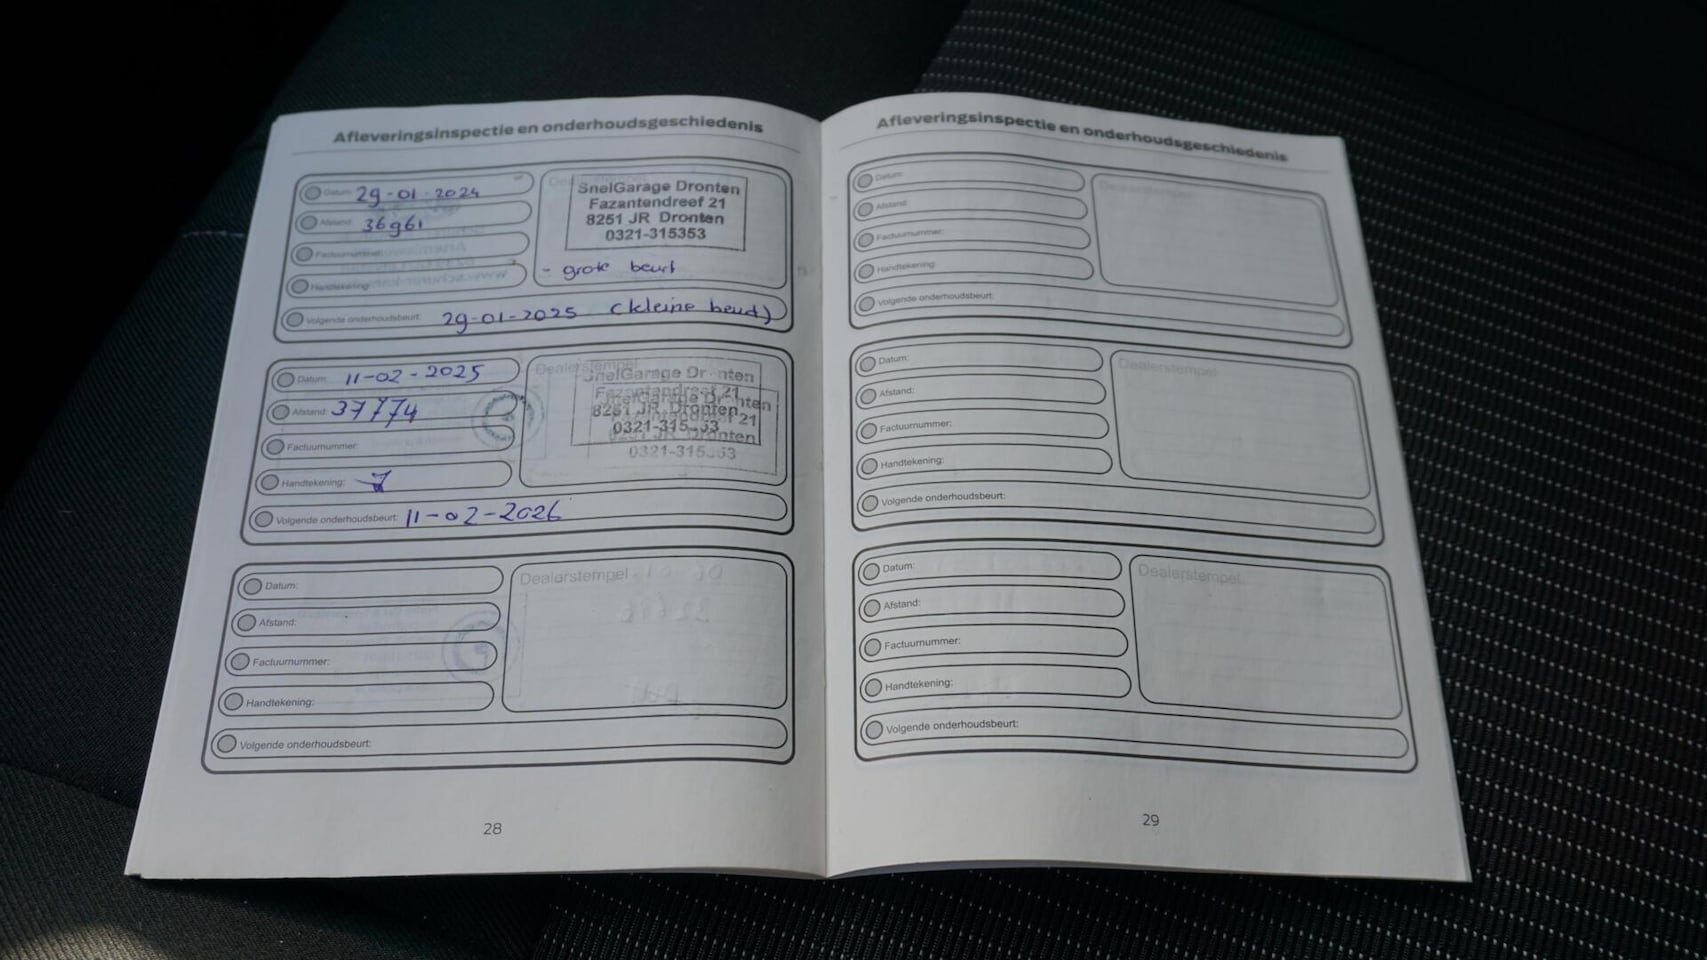 Afleveringsinspectie en onderhoudsgeschiedenis
Datum: 29-01-2024
Afstand: 36961
Factuurnummer:
Handtekening:
SnelGarage Dronten
Fazantendreef 21
8251 JR Dronten
0321-315353
- grote beurt
Volgende onderhoudsbeurt: 29-01-2025 (kleine beurt)
Datum: 11-02-2025
Afstand: 37774
Factuurnummer:
Handtekening:
Dealerstempel
SnelGarage Dr nten
Fazantendreef 21
8251 JR Dronten
0321-315 53
SnelGarage Dr nten
Fazantendreef 21
8251 JR Dronten
0321-315 53
Volgende onderhoudsbeurt: 11-02-2026
Datum:
Afstand:
Factuurnummer:
Handtekening:
Dealerstempel
Volgende onderhoudsbeurt:
28
Afleveringsinspectie en onderhoudsgeschiedenis
Datum:
Afstand:
Factuurnummer:
Handtekening:
Dealerstempel
Volgende onderhoudsbeurt:
Datum:
Afstand:
Factuurnummer:
Handtekening:
Dealerstempel
Volgende onderhoudsbeurt:
Datum:
Afstand:
Factuurnummer:
Handtekening:
Dealerstempel
Volgende onderhoudsbeurt:
29